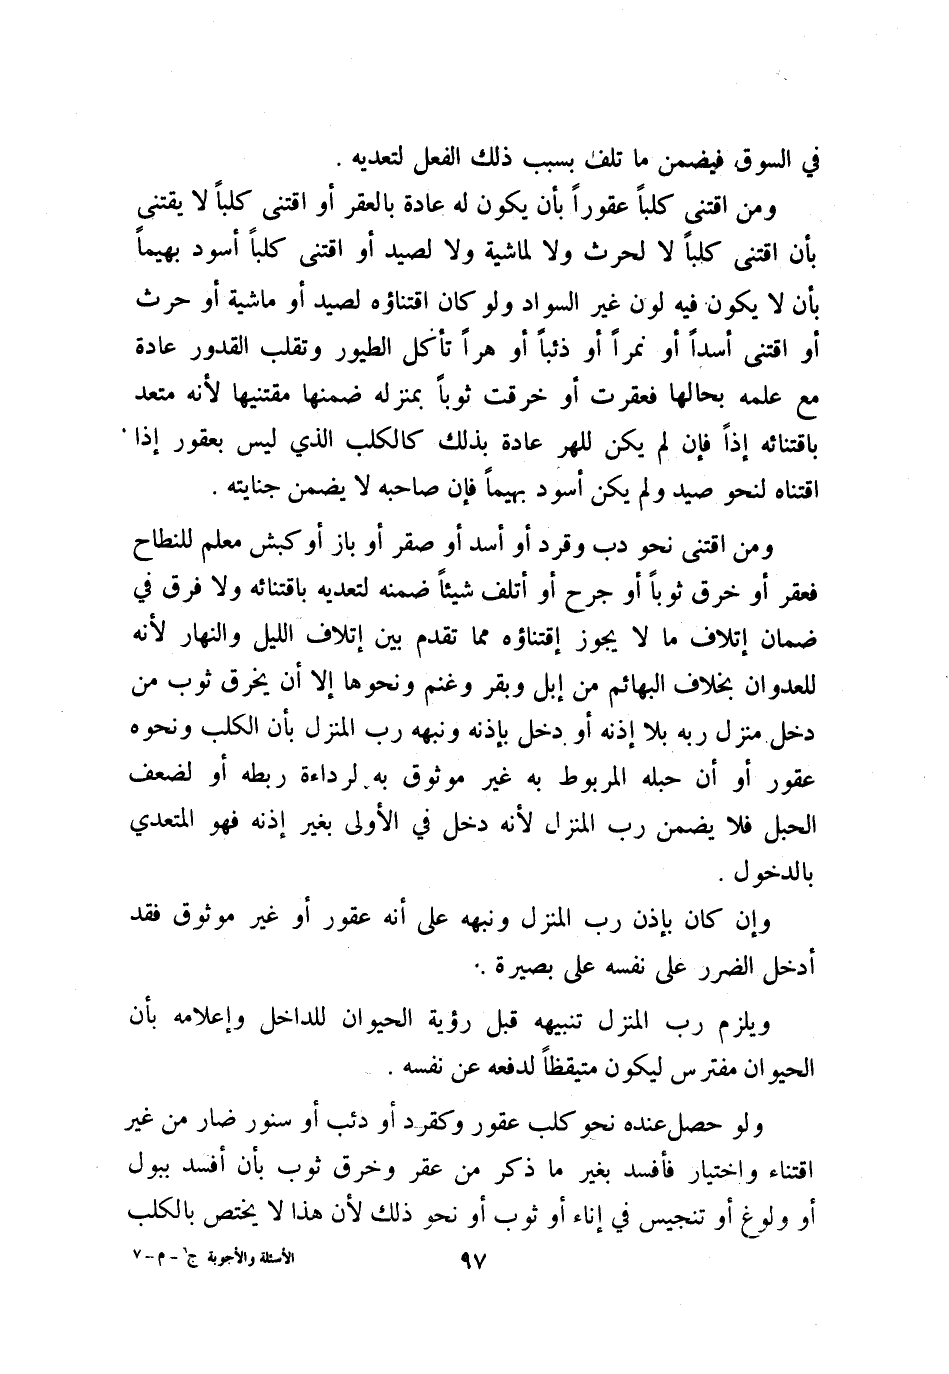 في السوق فيضمن ما تلف بسبب ذلك الفعل لتعديه .
ومن اقتنى كلباً عقوراً بأن يكون له عادة بالعقر أو اقتنى كلباً لا يقتنى
بأن اقتنى كلباً لا لحرث ولا لماشية ولا لصيد أو اقتنى كلباً أسود بهيماً
بأن لا يكون فيه لون غير السواد ولو كان اقتناؤه لصيد أو ماشية أو حرث
أو اقتنى أسداً أو نمراً أو ذئباً أو هراً تأكل الطيور وتقلب القدور عادة
مع علمه بحالها فعقرت أو خرقت ثوباً بمنزله ضمنها مقتنيها لأنه متعد
باقتنائه إذاً فإن لم يكن للهر عادة بذلك كالكلب الذي ليس بعقور إذا
اقتناه لنحو صيد ولم يكن أسود بهيماً فإن صاحبه لا يضمن جنايته .
ومن اقتنى نحو دب وقرد أو أسد أو صقر أو باز أو كبش معلم للنطاح
فعقر أو خرق ثوباً أو جرح أو أتلف شيئاً ضمنه لتعديه باقتنائه ولا فرق في
ضمان إتلاف ما لا يجوز إقتناؤه مما تقدم بين إتلاف الليل والنهار لأنه
للعدوان بخلاف البهائم من إبل وبقر وغنم ونحوها إلا أن يخرق ثوب من
دخل منزل ربه بلا إذنه أو دخل بإذنه ونبهه رب المنزل بأن الكلب ونحوه
عقور أو أن حبله المربوط به غير موثوق به لرداءة ربطه أو لضعف
الحبل فلا يضمن رب المنزل لأنه دخل في الأولى بغير إذنه فهو المتعدي
بالدخول .
وإن كان بإذن رب المنزل ونبهه على أنه عقور أو غير موثوق فقد
أدخل الضرر على نفسه على بصيرة .
ويلزم رب المنزل تنبيهه قبل رؤية الحيوان للداخل وإعلامه بأن
الحيوان مفترس ليكون متيقظاً لدفعه عن نفسه .
ولو حصل عنده نحو كلب عقور وكقرد أو دئب أو سنور ضار من غير
اقتناء واختيار فأفسد بغير ما ذكر من عقر وخرق ثوب بأن أفسد ببول
أو ولوغ أو تنجيس في إناء أو ثوب أو نحو ذلك لأن هذا لا يختص بالكلب
٩٧
الأسئلة والأجوبة ج١ - م - ٧